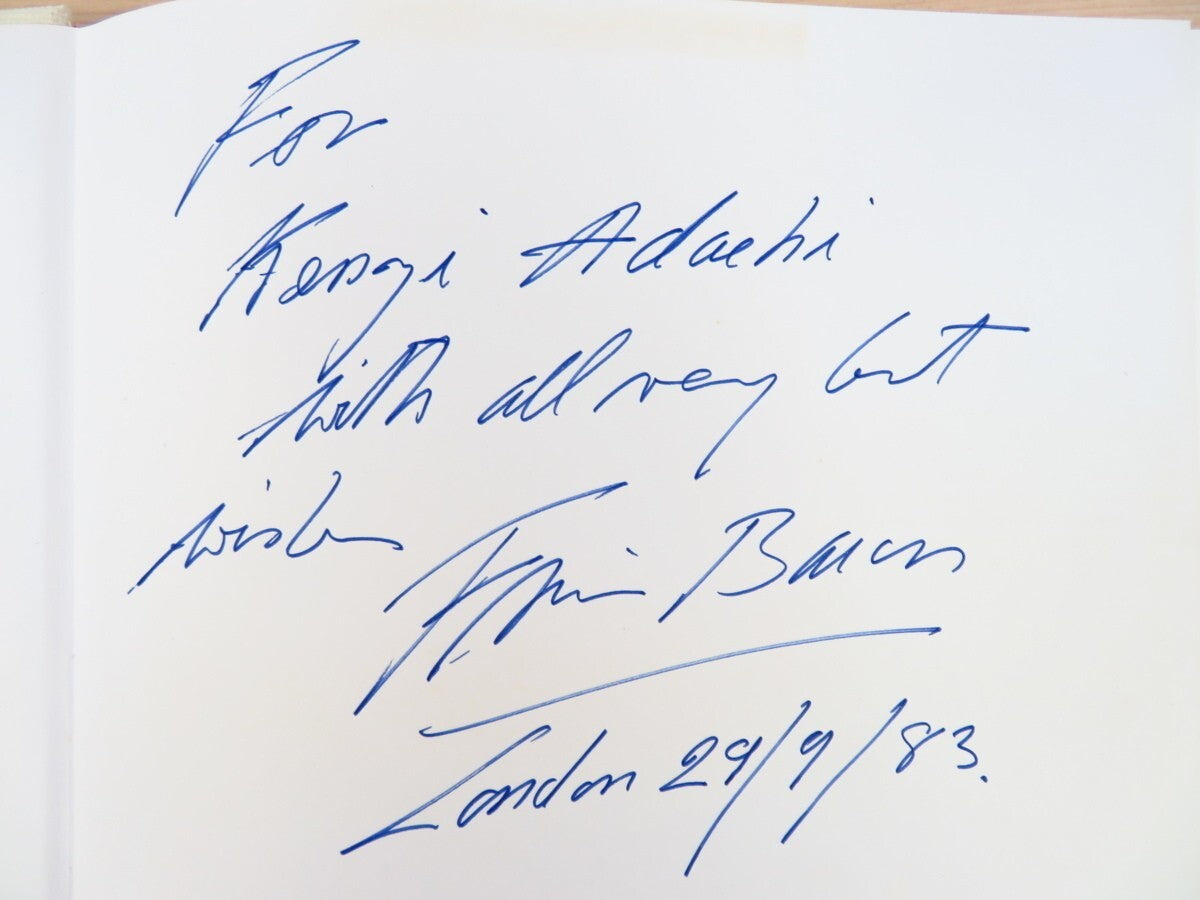 For
Kenji Adachi
with all very best
wishes Francis Bacon
London 29/9/83.